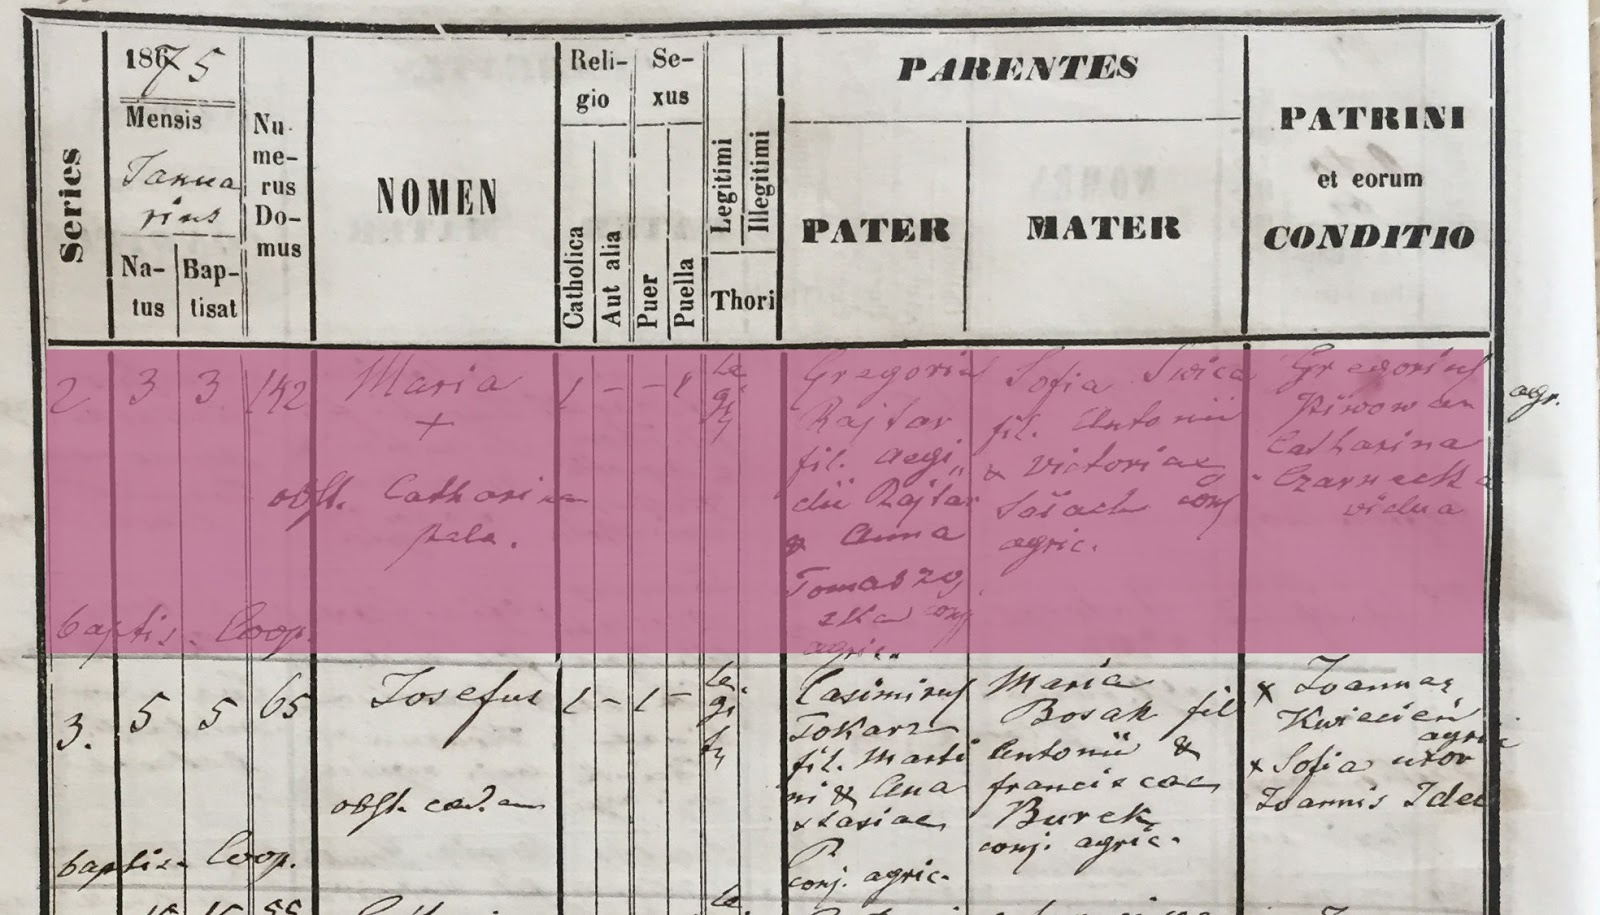 Series
1875
Mensis
Janua
rius
Na-
tus
Bap-
tisat
Nu-
me-
rus
Do-
mus
NOMEN
Reli-
gio
Catholica
Aut alia
Se-
xus
Puer
Puella
Legitimi
Illegitimi
Thori
PARENTES
PATER
MATER
PATRINI
et eorum
CONDITIO
2 3 3 142
Maria
+
obst. Catharina
baptis. Coop.
1 - - 1
Le
gi
ti
Gregorius
Rajtar
fil. Aegi„
dii Rajtar
& Anna
Tomaszo,
conj
agric.
Sofia
fil. Antonii
& Victoriae
conj
agric.
Gregorius
Piwowar
agr.
Catharina
Czarnecka
vidua
3. 5 5 65
Josefus
obst. ead.
baptis. Coop.
1 - 1 -
Le.
gi
ti
Casimirus
Tokarz
fil. Marti
ni & Ana
stasiae
conj. agric.
Maria
Bosak fil
Antonii &
franciscae
Burek
conj. agric.
x Joannes
Kwiecień
agric
x Sofia uxor
Joannis Idec
15 15
Le